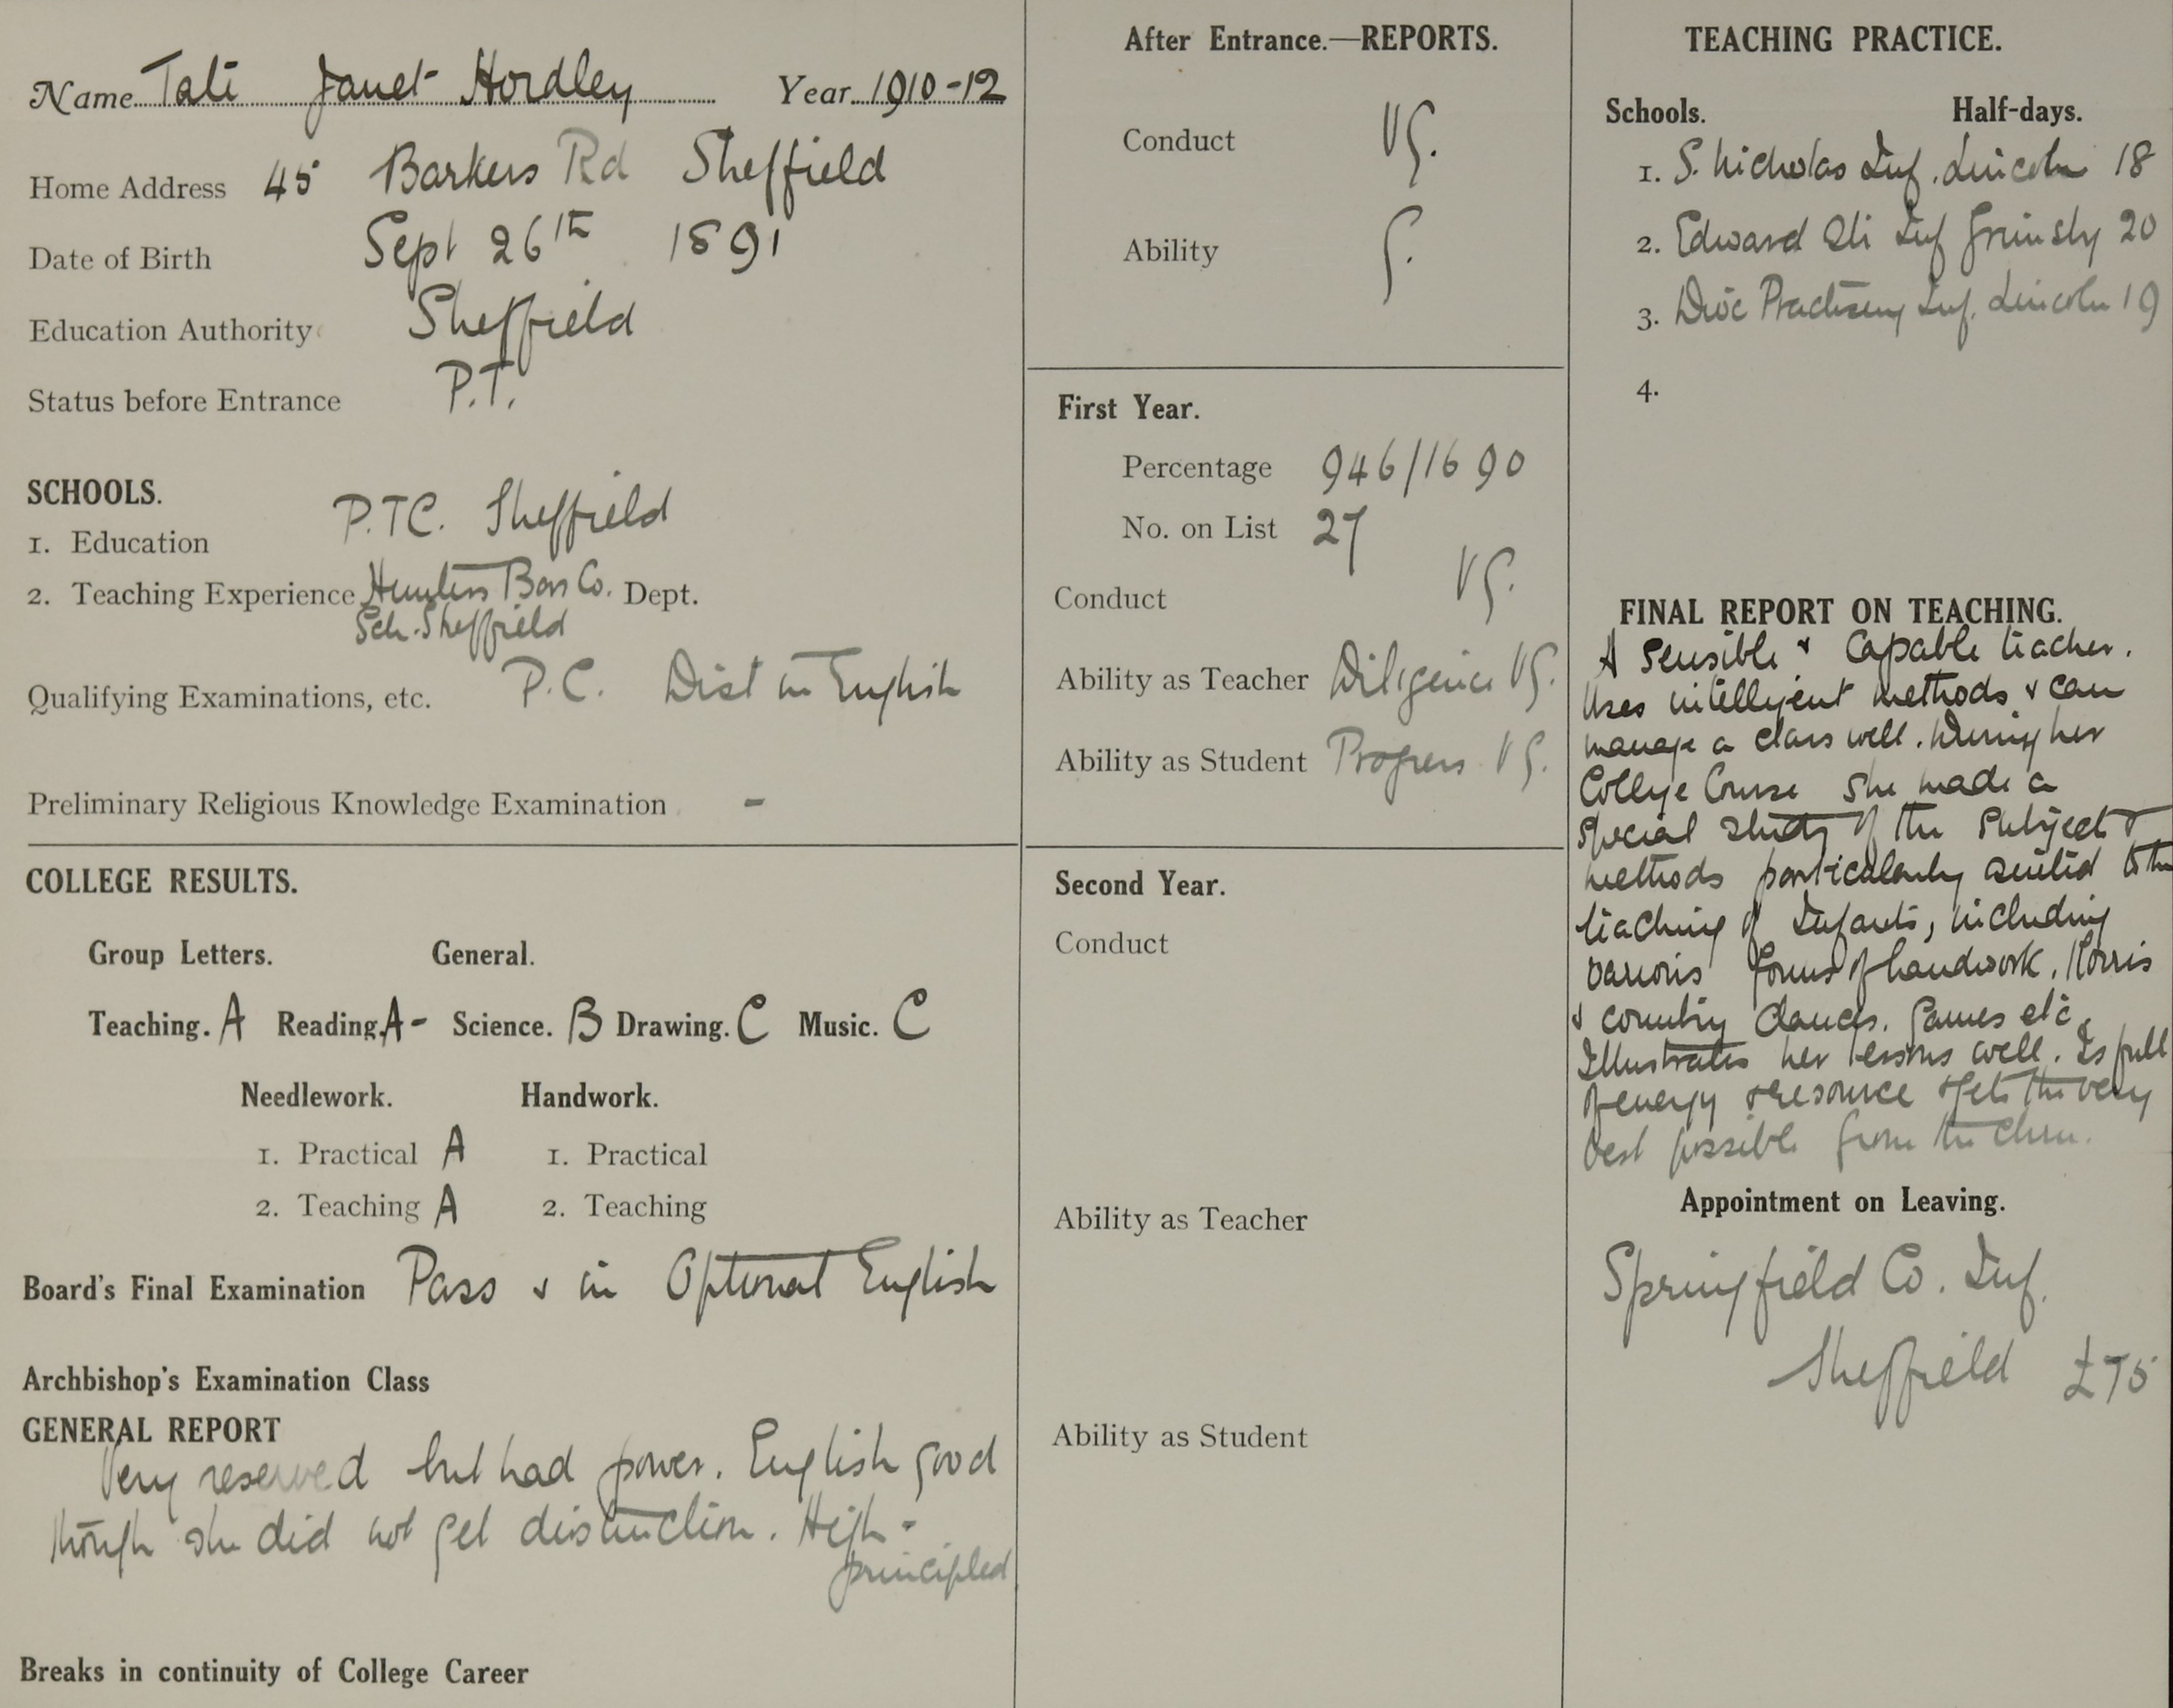 Name Tate Janet Hordley Year 1910-12
Home Address 45 Barkers Rd Sheffield
Date of Birth Sept 26th 1891
Education Authority Sheffield
Status before Entrance P.T.
SCHOOLS.
1. Education P.T.C. Sheffield
2. Teaching Experience Hunters Bar Co. Dept.
Sch. Sheffield
Qualifying Examinations, etc. P.C. Dist in English
Preliminary Religious Knowledge Examination -
COLLEGE RESULTS.
Group Letters. General.
Teaching. A Reading. A- Science. B Drawing. C Music. C
Needlework. Handwork.
1. Practical A 1. Practical
2. Teaching A 2. Teaching
Board's Final Examination Pass & in Optional English
Archbishop's Examination Class
GENERAL REPORT
Very reserved but had power. English good
though she did not get distinction. High-
principled
Breaks in continuity of College Career
After Entrance.—REPORTS.
Conduct VG.
Ability G.
First Year.
Percentage 946/1690
No. on List 27
Conduct VG.
Ability as Teacher Diligence VG.
Ability as Student Progress VG.
Second Year.
Conduct
Ability as Teacher
Ability as Student
TEACHING PRACTICE.
Schools. Half-days.
1. S. Nicholas Inf. Lincoln 18
2. Edward St Inf Grimsby 20
3. Dioc Practising Inf. Lincoln 19
4.
FINAL REPORT ON TEACHING.
A sensible & capable teacher.
Uses intelligent methods & can
manage a class well. During her
College Course she made a
special study of the subjects &
methods particularly suited to the
teaching of Infants, including
various forms of handwork, Morris
& country dances, games etc.
Illustrates her lessons well. Is full
of energy & resource & gets the very
best possible from the chn.
Appointment on Leaving.
Springfield Co. Inf.
Sheffield £75